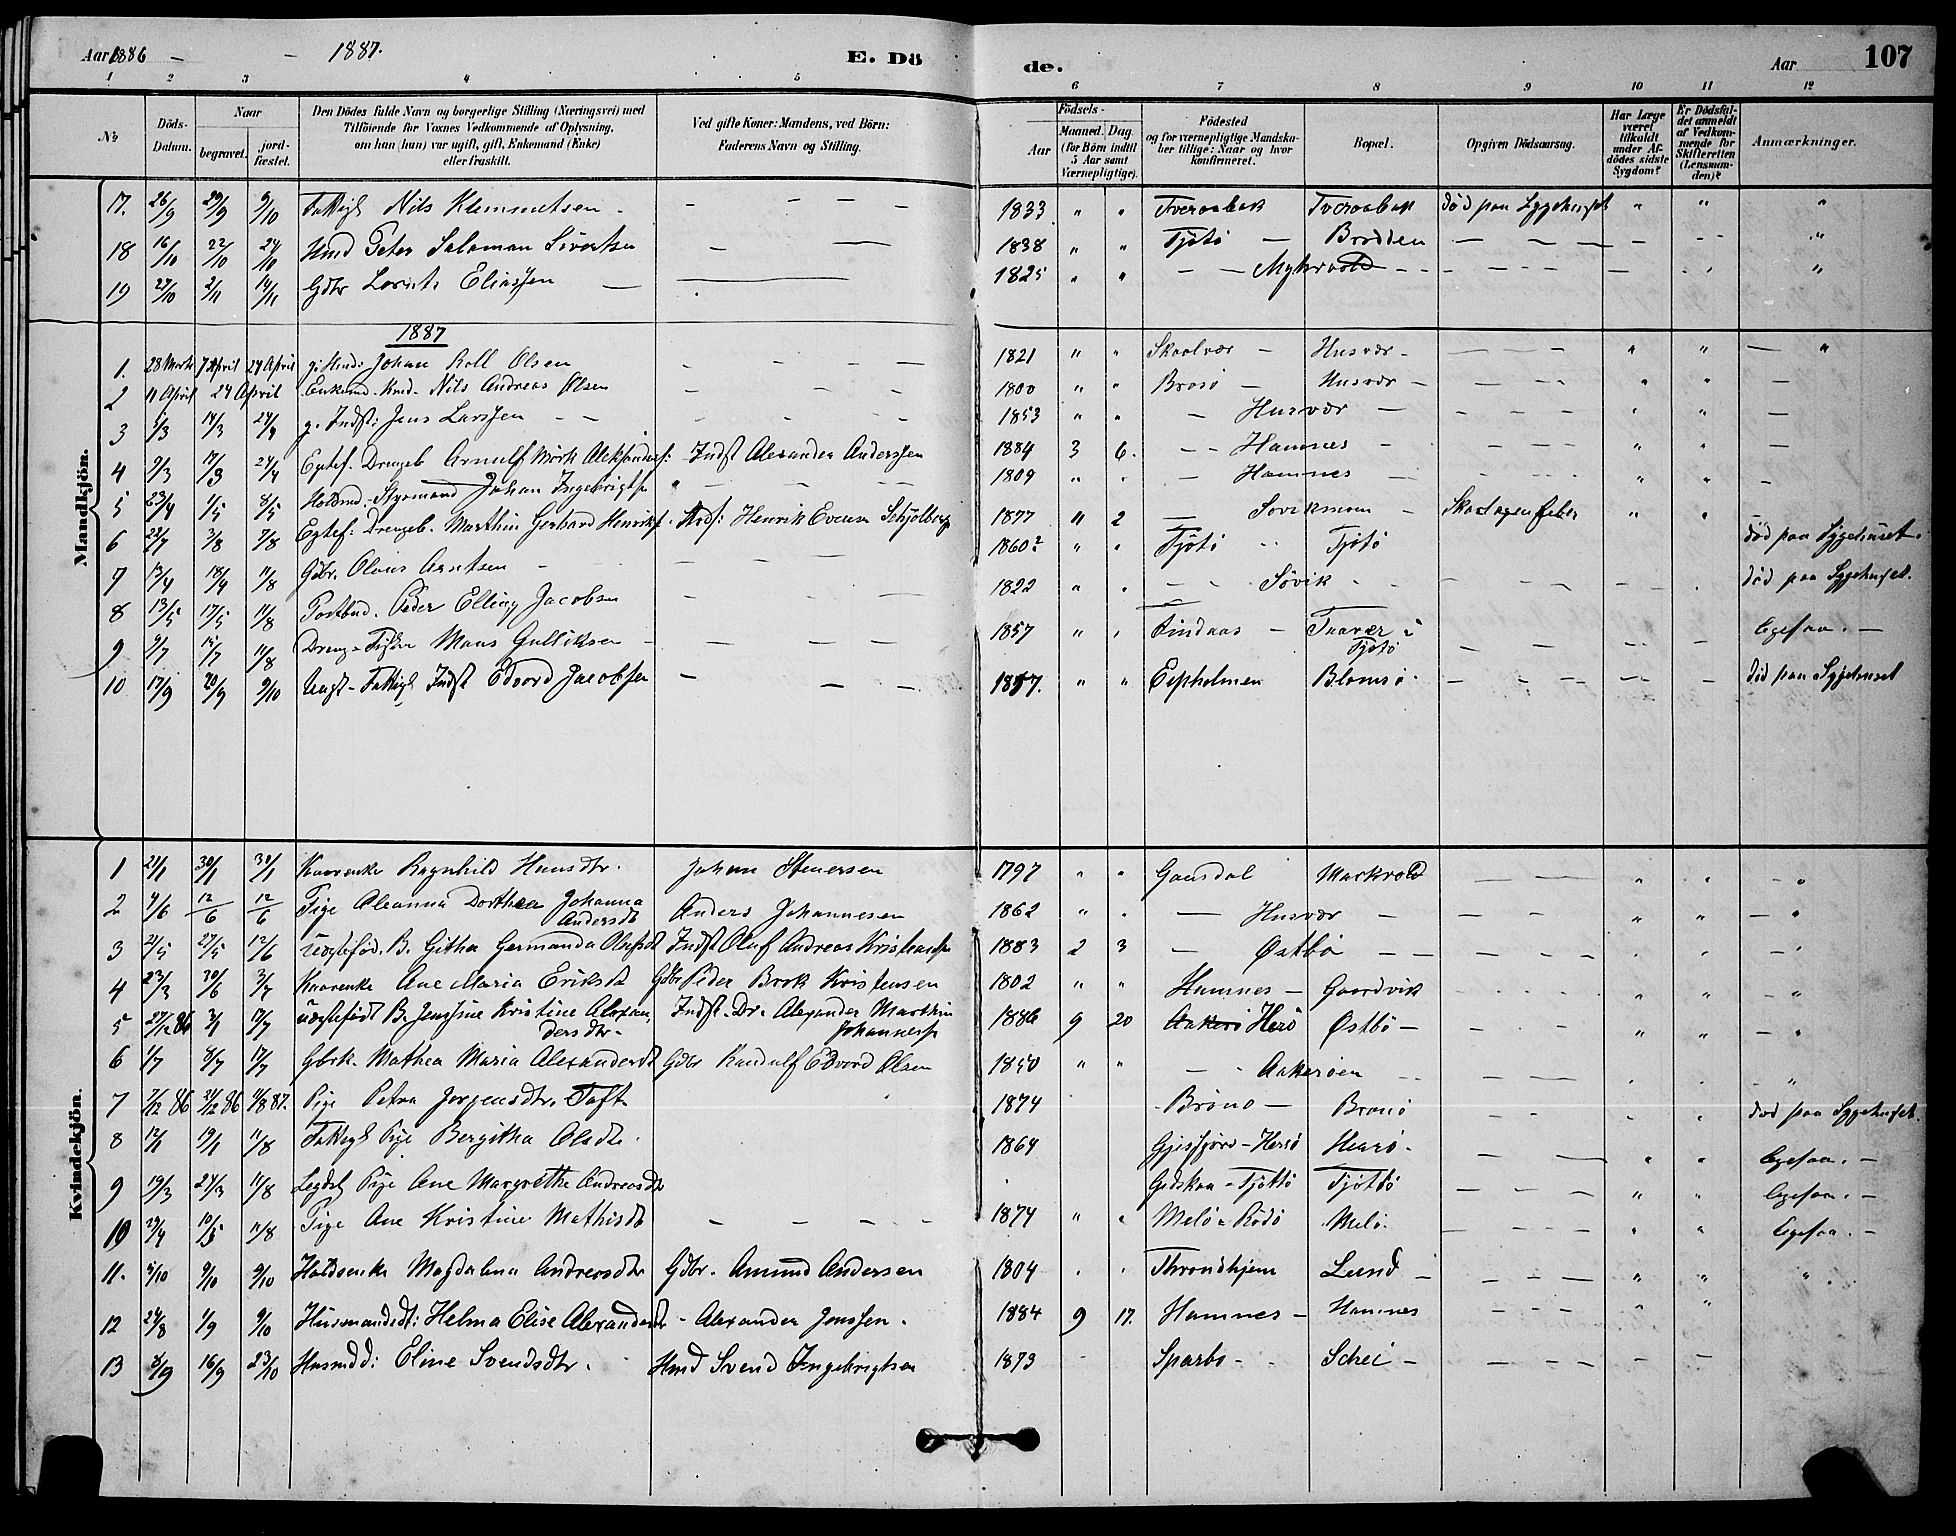 Aar 1886 — — 1887. E. Dö de. Aar 107
1 2 3 4 5 6 7 8 9 10 11 12
No. Döds-Datum. Naar begravet. jord-fæstet. Den Dödes fulde Navn og borgerlige Stilling (Næringsvei) med Tilföiende for Voxnes Vedkommende af Oplysning, om han (hun) var ugift, gift, Enkemand (Enke) eller fraskilt. Ved gifte Koner: Mandens, ved Börn: Faderens Navn og Stilling. Födsels- Aar Maaned. Dag. (for Börn indtil 5 Aar samt Værnepligtige). Födested og for værnepligtige Mandskaber tillige: Naar og hvor Konfirmeret. Bopæl. Opgiven Dödsaarsag. Har Læge været tilkaldt under Afdödes sidste Sygdom? Er Dödsfaldet anmeldt af Vedkommende for Skifteretten (Lensmanden)? Anmærkninger.
Mandkjön.
17. 26/9 29/9 9/10 Fattigl Nils Klemmetsen - - - - 1833 " " Tveraabak Tveraabak död paa Sygehuset " " "
18 16/10 22/10 24/10 Hmd Peter Salomon Sivertsen - — 1838 " " Tjötö — Brodden — — — "
19 27/10 2/11 14/11 Gdbr Lorents Eliassen — — 1825 " " - - Myhrvold - - - "
1887
1. 28 Marts 7 April 24 April g. Hmd: Johan Roll Olsen - - - 1821 " " Skaalvær - Husvær - — — " " — "
2 11 April 24 April Enkemd. Kmd. Nils Andreas Olsen - - - 1800 " " Brasö — Husvær — — — " " —
3 5/3 14/3 24/4 g. Indst: Jens Larssen - - 1853 " " - Husvær — - - " " —
4 9/3 17/3 24/4 Egtef. Drengeb Arnulf Mörk Aleksanders: Indst Alexander Anderssen 1884 3 6. - - Hamnes - - - " " —
5 23/4 1/5 8/5 Holdmd. Styrmand Johan Ingebrigts - - - 1809 " " - Hamnes - - - " " -
6 22/7 3/8 7/8 Egtef: Drengeb. Marthin Gerhard Henriks. Indst: Henrik Evensen Schjölberg 1877 " 2 — Sovikmoen - Skarlagensfeber " " död paa Sygehuset.
7 13/4 18/4 11/8 Gdbr. Olaus Arntsen - - - 1860? " " Tjötö " Tjötö död paa Sygehuset.
8 13/5 17/5 11/8 Postbud. Peder Elling Jacobsen - - — 1822 " " - - Sövik - - - -
9 9/7 15/7 11/8 Dreng - Fisker Mons Gulliksen - — — — 1857 " " Lindaas — Travær i Tjötö - - - ligesaa. —
10 17/9 20/9 9/10 Ungk - Fattigl Indst Edvard Jacobsen - - - 1857. " " Espholmen Blomsö - - - - död paa Sygehuset
Kvindekjön.
1 21/1 30/1 30/1 Kaarenke Ragnhild Hansdtr. Johan Stenersen 1797 " " Gausdal Markvold — — " " - "
2 4/6 12/6 12/6 Pige Oleanna Dorthea Johanna Andersdt Anders Johannesen 1862 " " — Husvær - - - " " - "
3 21/5 27/5 12/6 Uægteföd. B. Githa Germanda Olufsdt Indst Oluf Andreas Kristensen 1883 2 3 - Östbö - - - - " " - "
4 23/3 30/6 3/7 Kaarenke Ane Maria Eriksdt Gdbr Peder Brok Kristensen 1802 " " Hamnes - Gaardvik - - - " " - "
5 27/12 86 3/1 17/7 uægtefödt B. Jenssine Kristine Alexandersdtr. Indst. Dr. Alexander Marthin Johanness 1886 9 20 Aakerö Herö Östbö — - - - " " - "
6 1/7 8/7 17/7 Gbrk. Mathea Maria Alexandersdt Gdbr Randulf Edvard Olsen 1850 " " - - Aakeröen - - - - "
7 7/12 86 24/12 86 11/8 87. Pige Petra Jorgensdtr. Toft. 1874 Brönö — Brönö - - död paa Sygehuset.
8 12/1 19/1 11/8 Fattigl Pige Bergitha Olsdtr. 1864 Gjesfjord - Herö Herö - — — " " ligesaa. —
9 19/3 24/3 11/8 Legdsl Pige Ane Margrethe Andreasdtr Gidskaa - Tjöttö Tjöttö — — — " " ligesaa. -
10 29/4 10/5 11/8 Pige Ane Kristine Mathisdt - - - - 1874 " " Melö - Rödö Melö. — — — " " ligesaa. —
11. 5/10 9/10 9/10 Holdsenke Magdalena Andreasdtr Gdbr. Amund Andersen 1804 " " Throndhjem Lund — - - - " " "
12 24/8 1/9 9/10 Husmandsdt: Helma Elise Alexandersdt - Alexander Jenssen. 1884 9 17. Hamnes — Hamnes - - - " "
13 8/9 16/9 23/10 Husmdd: Eline Svendsdtr. Hmd Svend Ingebrigtsen 1873 - Sparbo - - Schei - - - - - —